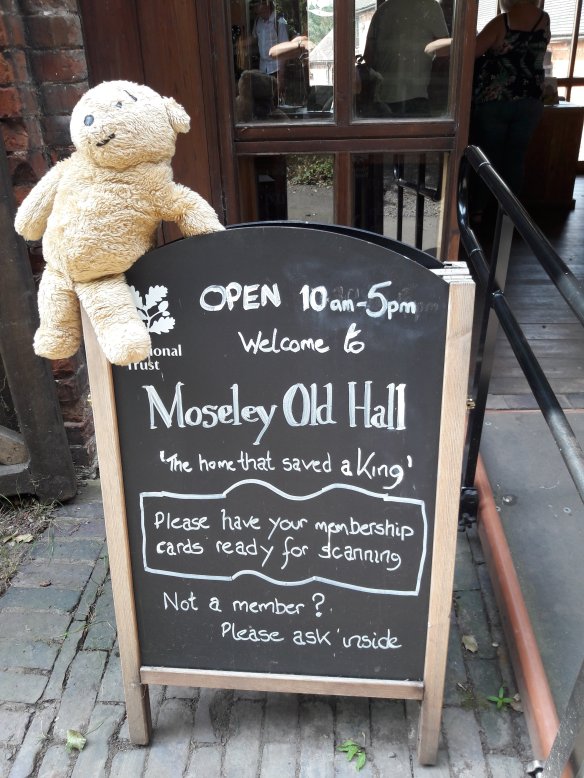 OPEN 10am-5pm
Welcome to
ional
Trust
Moseley Old Hall
'The home that saved a King'
Please have your membership
cards ready for scanning
Not a member?
Please ask inside